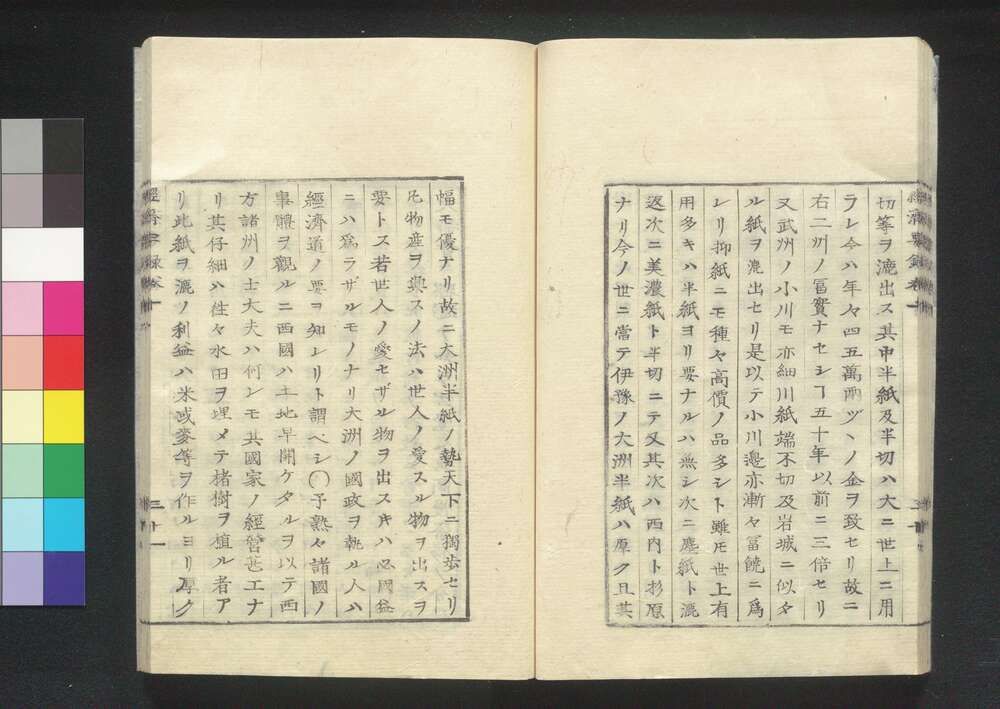 切等ヲ漉出ス其中半紙及半切ハ大ニ世上ニ用
ラレ今ハ年々四五萬兩ヅヽノ金ヲ致セリ故ニ
右二州ノ冨實ナセシヿ五十年以前ニ三倍セリ
又武州ノ小川モ亦細川紙端不切及岩城ニ似タ
ル紙ヲ漉出セリ是以テ小川邊亦漸々冨饒ニ爲
レリ抑紙ニモ種々高價ノ品多シト雖𪜈世上有
用多キハ半紙ヨリ要ナルハ無シ次ニ塵紙ト漉
返次ニ美濃紙ト半切ニテ又其次ハ西内ト杉原
ナリ今ノ世ニ當テ伊豫ノ大洲半紙ハ厚ク且其
幅モ優ナリ故ニ大洲半紙ノ勢天下ニ獨歩セリ
凡物産ヲ興スノ法ハ世人ノ愛スル物ヲ出スヲ
要トス若世人ノ愛セザル物ヲ出スキハ必國益
ニハ爲ラザルモノナリ大洲ノ國政ヲ執ル人ハ
經濟道ノ要ヲ知レリト謂ベシ〇予熟々諸國ノ
事體ヲ觀ルニ西國ハ土地早開ケタルヲ以テ西
方諸州ノ士大夫ハ何レモ其國家ノ經營甚工ナ
リ其仔細ハ往々水田ヲ埋メテ楮樹ヲ植ル者ア
リ此紙ヲ漉ノ利益ハ米或麥等ヲ作ルヨリ厚ク
三十一